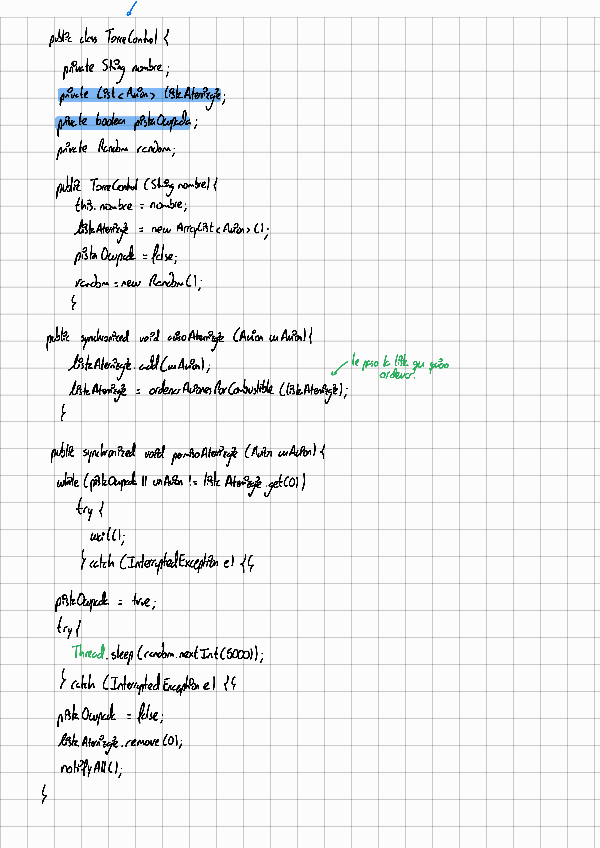 public class TorreControl {
private String nombre;
private List<Avion> listaAterrizaje;
private boolean pistaOcupada;
private Random random;
public TorreControl (String nombre) {
this.nombre = nombre;
listaAterrizaje = new ArrayList<Avion>();
pistaOcupada = false;
random = new Random();
}
public synchronized void avisoAterrizaje (Avion unAvion) {
listaAterrizaje.add(unAvion);
listaAterrizaje = ordenarAvionesPorCombustible (listaAterrizaje);
le paso la lista que quiero
ordenar.
}
public synchronized void permisoAterrizaje (Avion unAvion) {
while (pistaOcupada || unAvion != listaAterrizaje.get(0))
try {
wait();
} catch (InterruptedException e) {}
pistaOcupada = true;
try {
Thread.sleep (random.nextInt(5000));
} catch (InterruptedException e) {}
pistaOcupada = false;
listaAterrizaje.remove(0);
notifyAll();
}